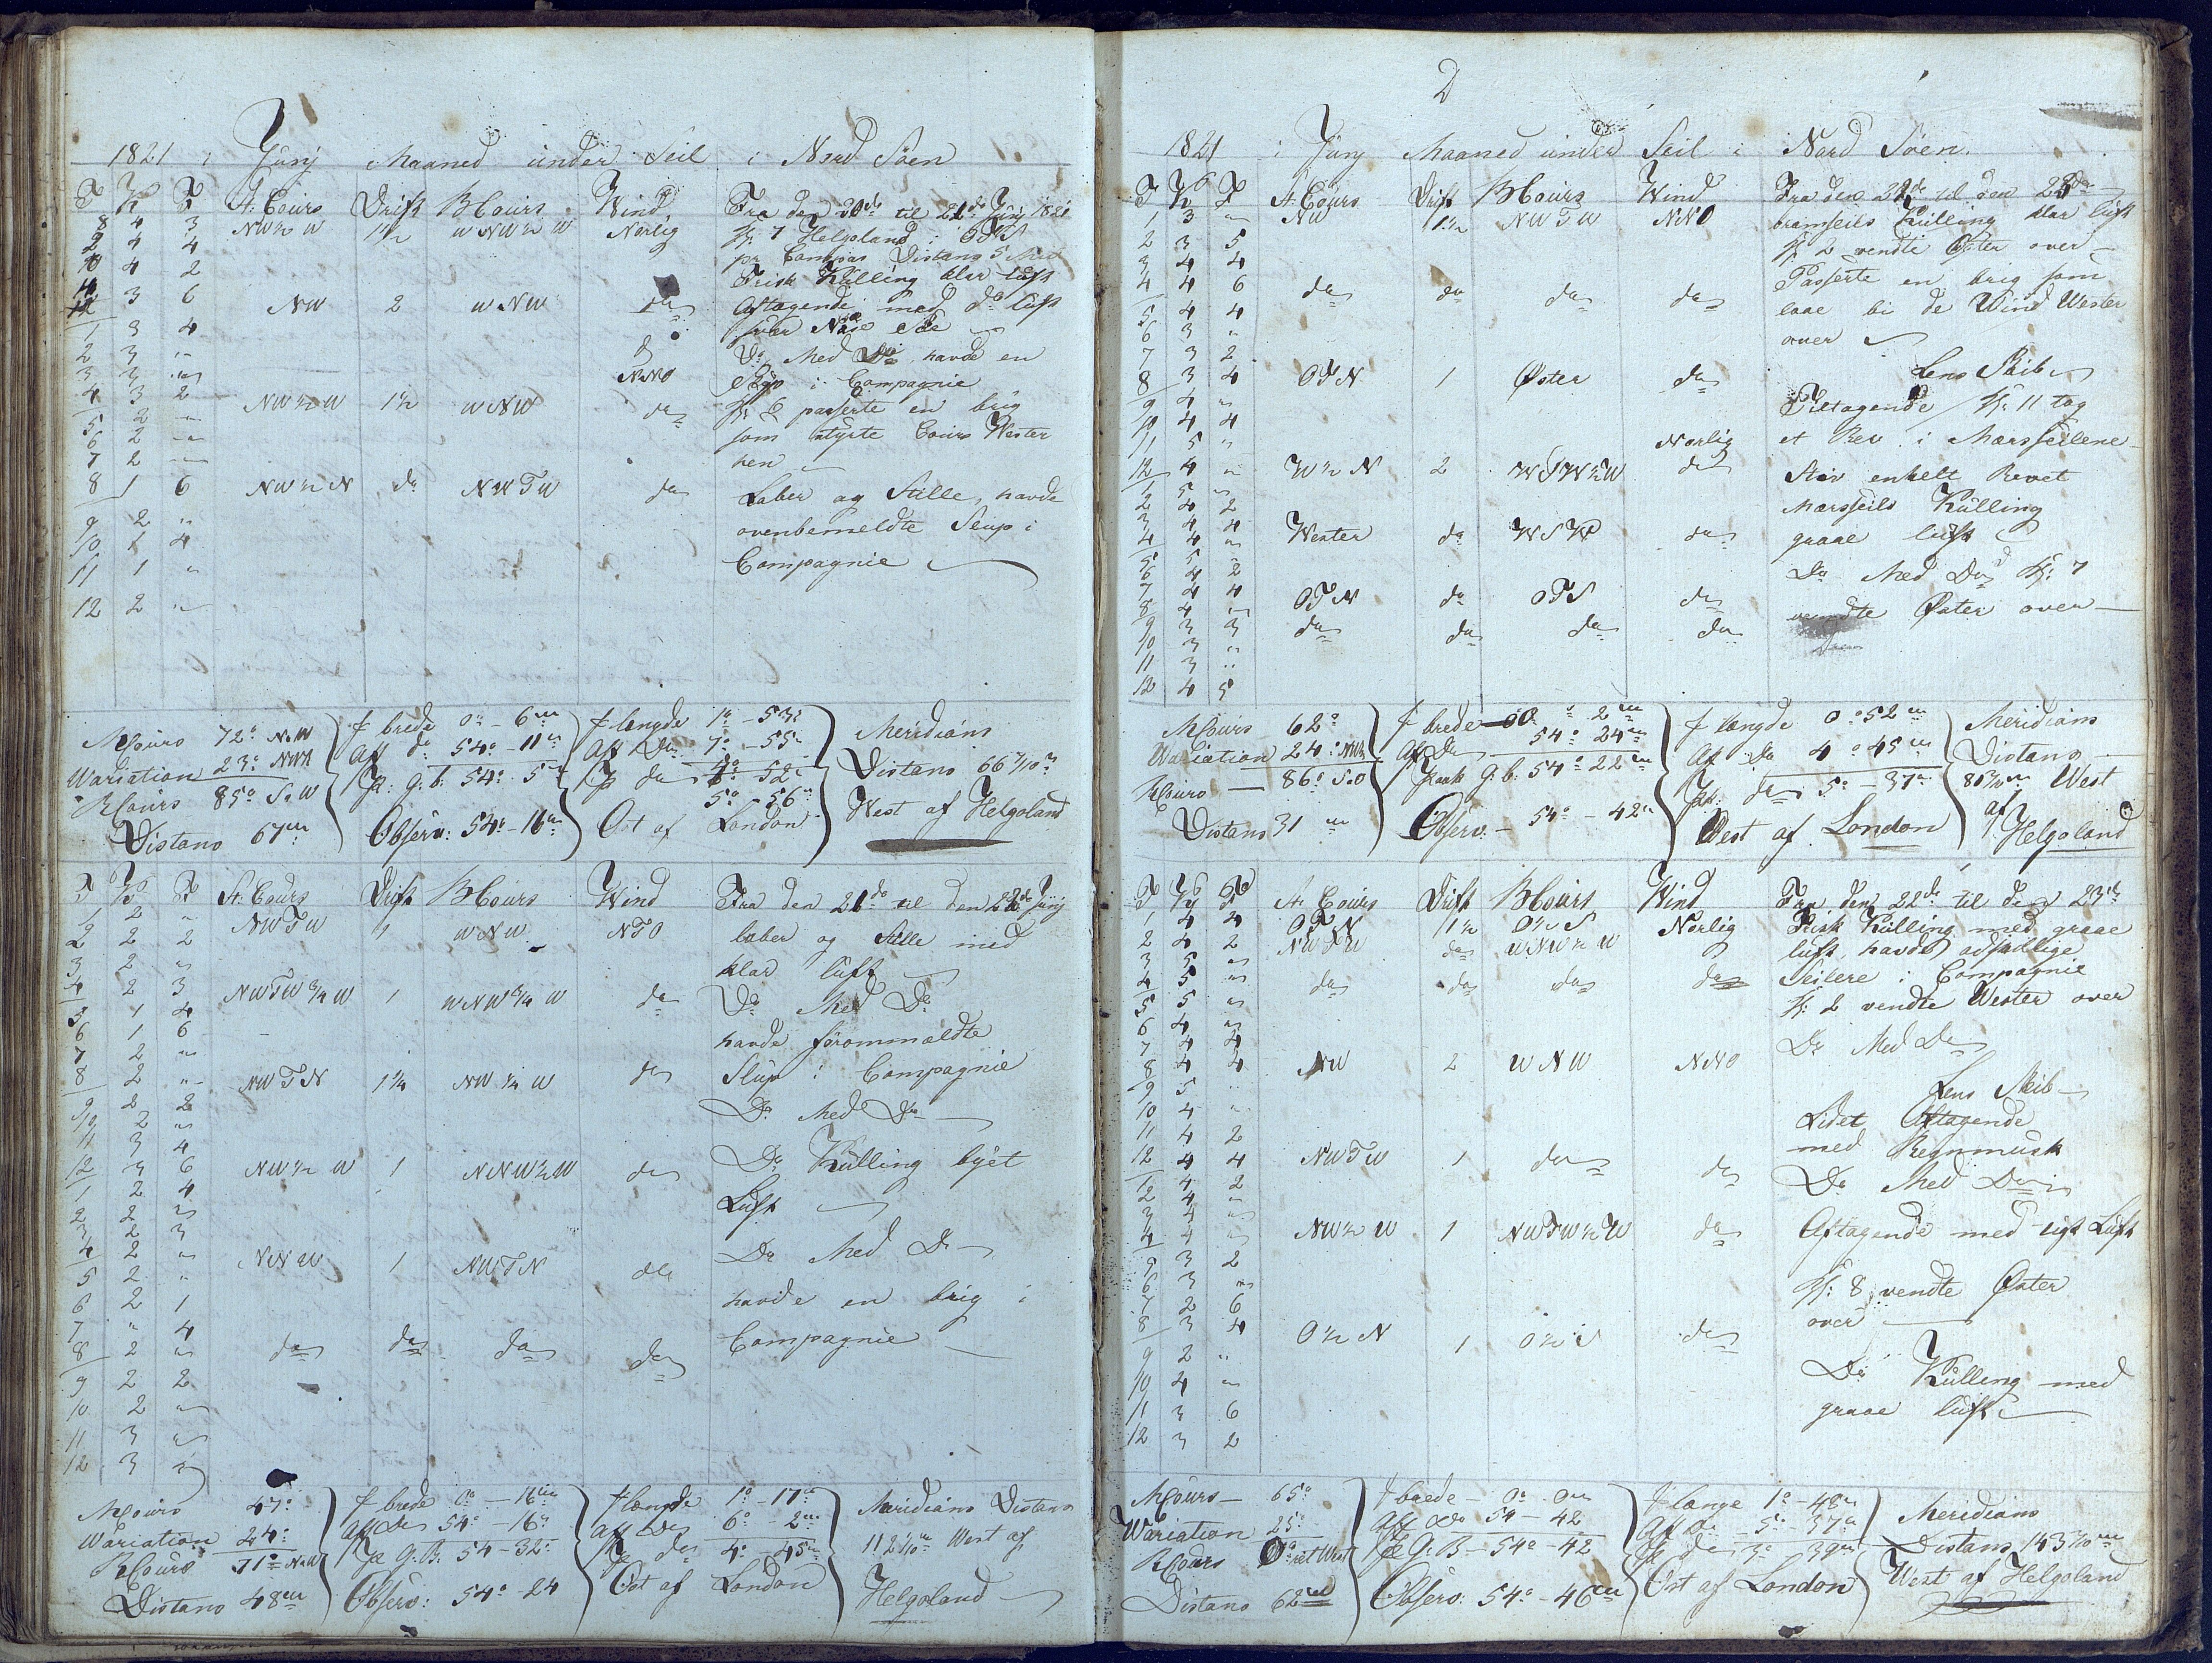 1821 i Junj Maaned under Seil i Nord Söen
T K F St. Cours Drift B Cours Wind Fra den 20de til 21de Junj 1821
8 4 3 NW½W 1½ WNW½W Norlig Kl: 7 Helgoland i
9 4 4 pr Compas Distans 5
10 4 2 Frisk Külling klar luft
11 3 6 NW 2 WNW do Aftagende med do luft
12
1 3 4
2 3 " Do Med Do havde en
3 3 " NNO i Compagnie
4 3 2 NW½W 1½ WNW do passerte en brig
5 2 " som styrte Cours Wester
6 2 " hen
7 2 "
8 1 6 NW½N do NWTW do Laber og Stille, havde
9 2 " ovenbemeldte Slup i
10 1 4 Compagnie
11 1 "
12 2 "
MCours 72° NoW
Wariation 23° NWW
RCours 85° SoW
Distans 67m
F brede 0° - 6m
Aff do 54° - 11m
Pa: g: b: 54° 5m
Observ: 54° - 16m
F længde 1° - 53m
Aff Do 7° - 55m
5° - 56m
Ost af London
Meridians
Distans 66 7/10m
West af Helgoland
T K F St. Cours Drift B Cours Wind Fra den 21de til den 22de Junj
1 2 " NWTW 1 WNW NTO laber og Stille med
2 2 2 klar luft
3 2 "
4 2 3 NWTW¾W 1 WNW¾W do Do Med Do
5 1 4 havde forommældte
6 1 6
7 2 "
8 2 " NWTN 1¼ NW¼W do Slup i Compagnie
9 2 2 Do Med Do
10 2 "
11 3 4
12 3 6 NW½W 1 NNW½W do Do Külling byet
1 2 4 Luft
2 2 "
3 2 3
4 2 " NNW 1 NWTN do Do Med Do
5 2 "
6 2 1 havde en brig i
7 " 4
8 2 " do do do do Compagnie
9 2 2
10 2 "
11 3 "
12 3 "
MCours 47°
Wariation 24°
RCours 71° NoW
Distans 48m
F brede 0° - 16m
Aff Do 54° - 16m
Pa G: B: 54 - 32°
Observ: 54° - 24
F længde 1° - 17m
Aff Do 6° - 2m
Pa do 4° - 45m
Ost af London
Meridians Distans
112 1/10m West af
Helgoland
2
1821 i Junj Maaned under Seil i Nord Söen.
T K F St. Cours Drift B Cours Wind Fra den til den
1 3 " NW 1½ NWTW NNO bramseils Külling klar luft
2 3 5 Kl: 2 vendte Øster over
3 4 4 Passerte en brig som
4 4 6 do do do do laae bi de Wind Wester
5 4 4 over
6 3 "
7 3 2 Lens Skib
8 3 4 OTN 1 Øster do Tiltagende Kl: 11 tog
9 4 "
10 4 4
11 5 " Norlig et Rev i Mærsseilene
12 4 " W½N 2 WSW½W do Stiv enkelt Revet
1 5 " Mærsseils Külling
2 4 2
3 4 4
4 4 " Wester do WSW do graae luft
5 5 " Do Med Do Kl: 7
6 4 2
7 4 4
8 4 " OTN do OTS do vendte Øster over
9 3 3 do do do do
10 3 "
11 3 "
12 4 5
MCours 62°
Wariation 24° NW
RCours 86° SoO
Distans 31m
F brede 0° 2m
Af Do 54° 24m
Paak g: b: 54° 22m
Observ. - 54° - 42m
F længde 0° 52m
Af Do 4° 45m
Pa: do 5° - 37m
West af London
Meridians
Distans
West
af
Helgoland
T K F St. Cours Drift B Cours Wind Fra den 22de til den 23de
1 4 4 OTN 1½ O½S Norlig Frisk Külling med graae
2 4 2 NWTW do WNW½W luft, havde adskillige
3 5 " Seilere i Compagnie
4 5 " do do do do Kl: 2 vendte Wester over
5 5 "
6 4 " Do Med Do
7 4 4
8 4 4 NW 2 WNW NNO
9 5 " Lens Skib
10 4 " Lidet Aftagende
11 4 2 med Regnmusk
12 4 4 NWTW 1 do do Do Med Do
1 4 2
2 4 "
3 4 "
4 4 " NW½W 1 NWTW½W do Aftagende med sigt Luft
5 3 2
6 3 " Kl: 8 vendte Øster
7 2 6
8 3 4 O½N 1 O½S do over
9 2 " Do Külling med
10 4 "
11 3 6 graae luft
12 3 2
MCours - 65°
Wariation 25°
RCours ret West
Distans 62m
F brede - 0° 0m
Aff Do 54 - 42
Pa G: B - 54° - 42
Observ: 54° - 46m
F længe 1° - 48m
Af Do 5° - 37m
Pa do 3° - 39m
Ost af London
Meridians
Distans 143 7/10m
West af Helgoland